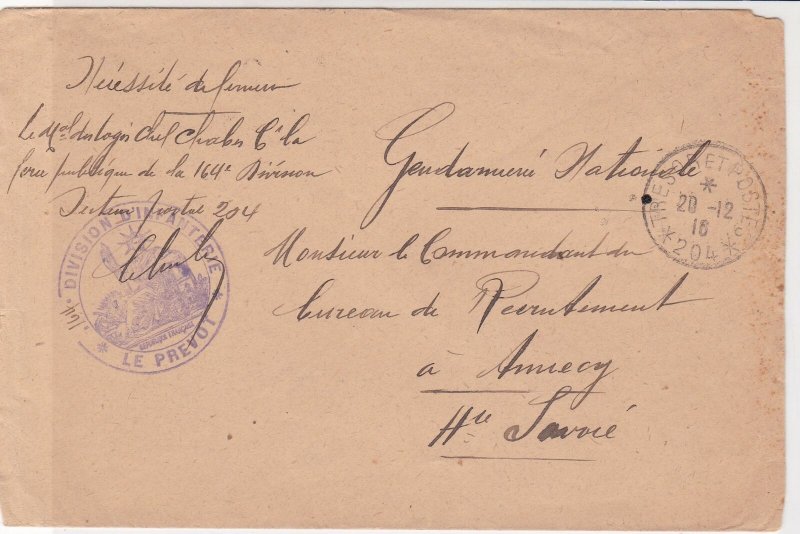 Nécessité de fermer
Le Mal des logis Chef Chef Ct la
force publique de la 164e Division
Secteur postal 204
164e DIVISION D'INFANTERIE
REPUBLIQUE FRANÇAISE
* LE PREVOT *
Gendarmerie Nationale
Monsieur le Commandant du
bureau de Recrutement
à Annecy
Hte Savoie
TRESOR ET POSTES
*
20 -12
16
* 204 *